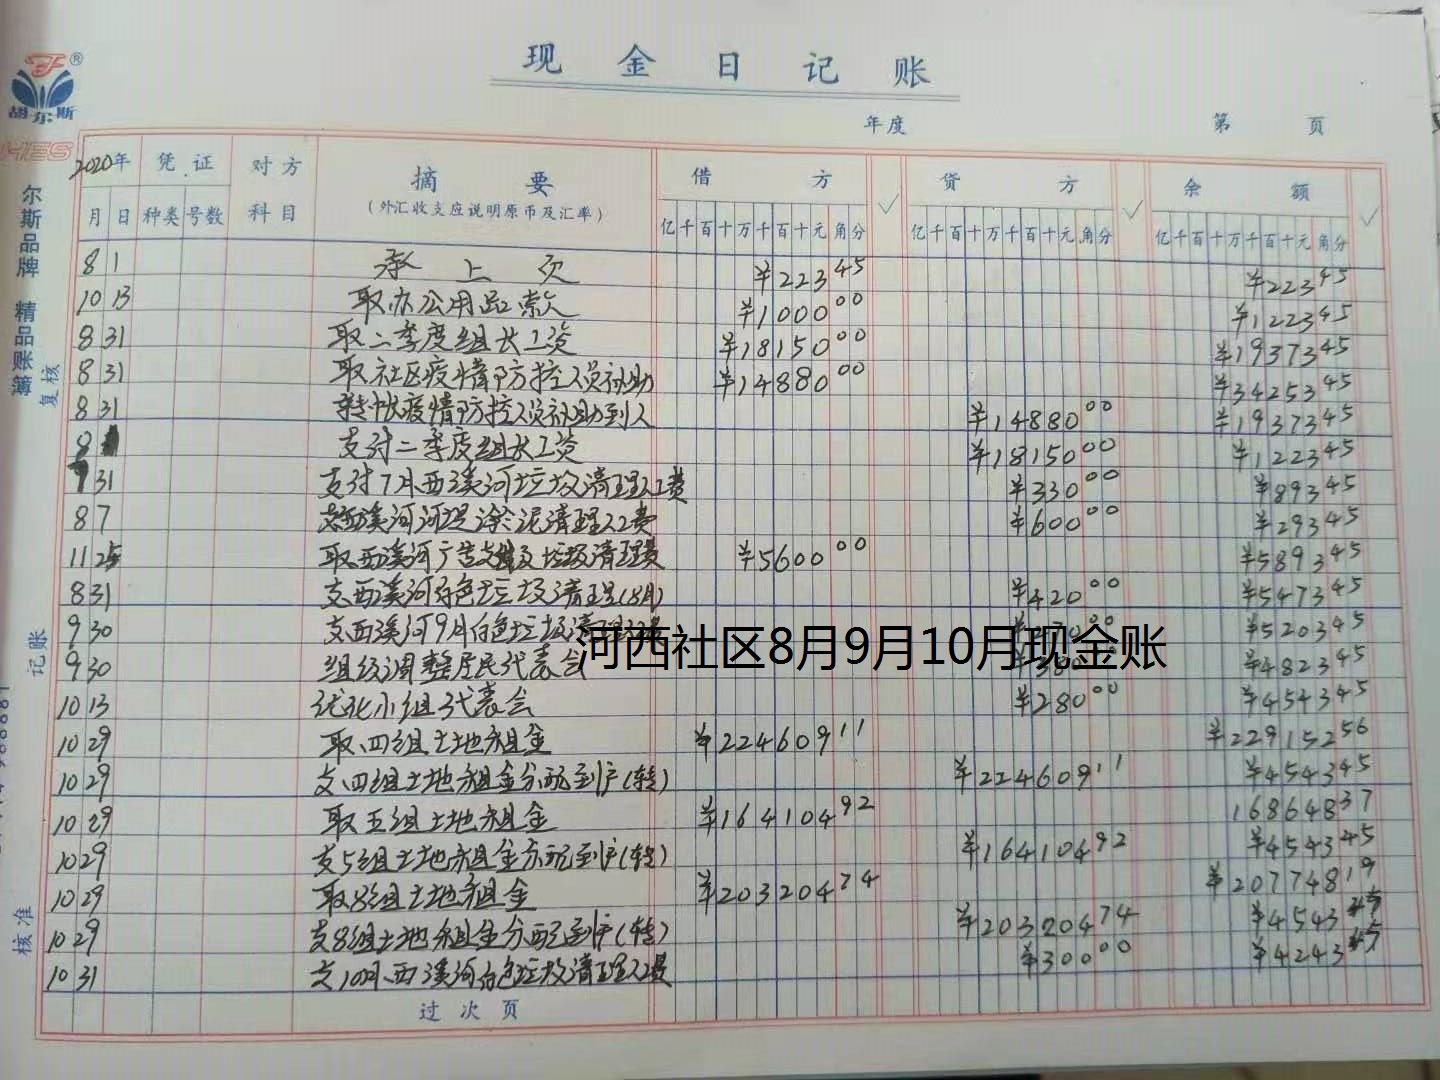 现 金 日 记 账
胡尔斯 ®
HES
年度
第 页
尔斯品牌 精品账簿
复核
记账
核准
2020年 凭证 对方科目 摘要 借方 ✓ 贷方 ✓ 余额 ✓
月 日 种类 号数 (外汇收支应说明原币及汇率) 亿千百十万千百十元角分 亿千百十万千百十元角分 亿千百十万千百十元角分
8 1 承上页 ¥22345 ¥22345
10 13 取办公用品款 ¥100000 ¥122345
8 31 取二季度组长工资 ¥1815000 ¥1937345
8 31 取社区疫情防控人员补助 ¥1488000 ¥3425345
8 31 转帐疫情防控人员补助到人 ¥1488000 ¥1937345
8 支付二季度组长工资 ¥1815000 ¥122345
7 31 支付7月西溪河垃圾清理人工费 ¥33000 ¥89345
8 7 支西溪河河堤淤泥清理人工费 ¥60000 ¥29345
11 25 取西溪河广告及垃圾清理费 ¥560000 ¥589345
8 31 支西溪河白色垃圾清理(8月) ¥42000 ¥547345
9 30 支西溪河9月白色垃圾清理 ¥520345
9 30 组级调整居民代表会 ¥482345
10 13 小组代表会 ¥28000 ¥454345
10 29 取四组土地租金 ¥22460911 ¥22915256
10 29 支四组土地租金分配到户(转) ¥22460911 ¥454345
10 29 取五组土地租金 ¥16410492 16864837
10 29 支5组土地租金分配到户(转) ¥16410492 ¥454345
10 29 取8组土地租金 ¥20320474 ¥20774819
10 29 支8组土地租金分配到户(转) ¥20320474 ¥454345
10 31 支10月西溪河白色垃圾清理人工费 ¥30000 ¥424345
过次页
河西社区8月9月10月现金账